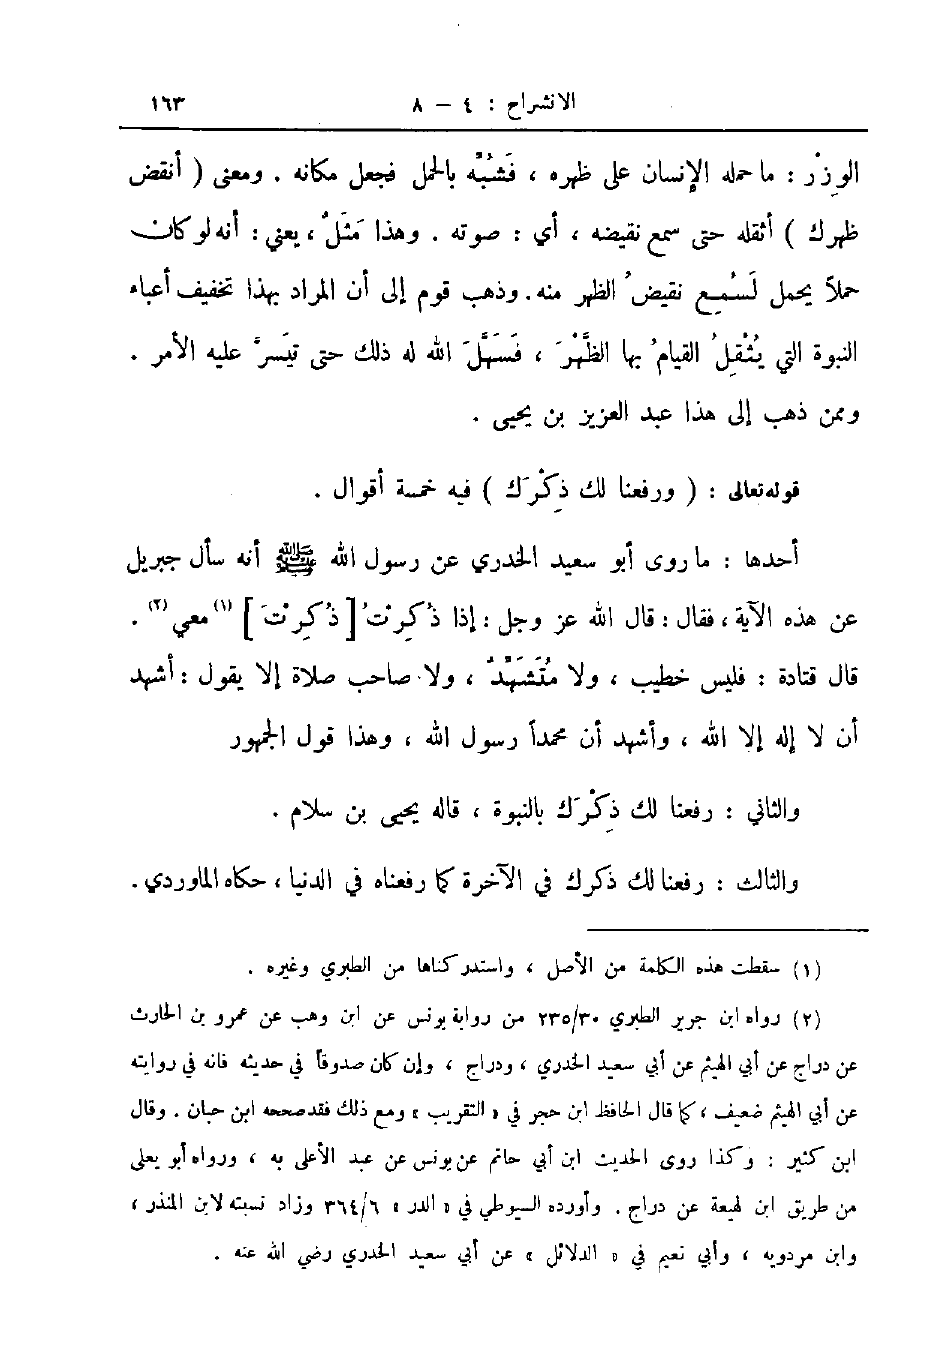 الانشراح : ٤ – ٨ ١٦٣
الوِزْر : ما حمله الإنسان على ظهره ، فَشُبِّهَ بالحمل فجعل مكانه . ومعنى ( أنقض
ظهرك ) أثقله حتى سمع نقيضه ، أي : صوته . وهذا مَثَلٌ ، يعني : أنه لو كان
حملاً يحمل لَسُمِع نقيضُ الظهر منه. وذهب قوم إلى أن المراد بهذا تخفيف أعباء
النبوة التي يُثْقِلُ القيامُ بها الظَّهْرَ ، فَسَهَّلَ الله له ذلك حتى تيَسرَّ عليه الأمر .
وممن ذهب إلى هذا عبد العزيز بن يحيى .
قوله تعالى : ( ورفعنا لك ذِكْرَك ) فيه خمسة أقوال .
أحدها : ما روى أبو سعيد الخدري عن رسول الله ﷺ أنه سأل جبريل
عن هذه الآية ، فقال : قال الله عز وجل : إذا ذُكِرْتُ [ ذُكِرْتَ ] (١) معي (٢) .
قال قتادة : فليس خطيب ، ولا مُتَشَهِّدٌ ، ولا صاحب صلاة إلا يقول : أشهد
أن لا إله إلا الله ، وأشهد أن محمداً رسول الله ، وهذا قول الجمهور
والثاني : رفعنا لك ذِكْرَك بالنبوة ، قاله يحيى بن سلام .
والثالث : رفعنا لك ذكرك في الآخرة كما رفعناه في الدنيا ، حكاه الماوردي .
(١) سقطت هذه الكلمة من الأصل ، واستدركناها من الطبري وغيره .
(٢) رواه ابن جرير الطبري ٢٣٥/٣٠ من رواية يونس عن ابن وهب عن عمرو بن الحارث
عن دراج عن أبي الهيثم عن أبي سعيد الخدري ، ودراج ، وإن كان صدوقاً في حديثه فانه في روايته
عن أبي الهيثم ضعيف ، كما قال الحافظ ابن حجر في « التقريب » ومع ذلك فقد صححه ابن حبان . وقال
ابن كثير : وكذا روى الحديث ابن أبي حاتم عن يونس عن عبد الأعلى به ، ورواه أبو يعلى
من طريق ابن لهيعة عن دراج . وأورده السيوطي في « الدر » ٣٦٤/٦ وزاد نسبته لابن المنذر ،
وابن مردويه ، وأبي نعيم في « الدلائل » عن أبي سعيد الخدري رضي الله عنه .